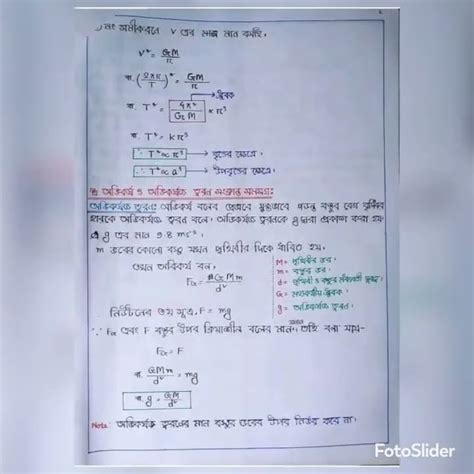 ১নং সমীকরণে v এর মান বসাই,
v² = GM/r
বা, (2πr/T)² = GM/r
ধ্রুবক
বা, T² = 4π²/GM × r³
বা, T² = kr³
∴ T² ∝ r³ → বৃত্তের ক্ষেত্রে।
∴ T² ∝ a³ → উপবৃত্তের ক্ষেত্রে।
অভিকর্ষ ও অভিকর্ষজ ত্বরণ সংক্রান্ত সমস্যা:
অভিকর্ষজ ত্বরণ: অভিকর্ষ বলের প্রভাবে মুক্তভাবে পড়ন্ত বস্তুর বেগ বৃদ্ধির
হারকে অভিকর্ষজ ত্বরণ বলে। অভিকর্ষজ ত্বরণকে g দ্বারা প্রকাশ করা হয়
g এর মান 9.8 ms⁻²।
m ভরের কোনো বস্তু যখন পৃথিবীর দিকে ধাবিত হয়,
তখন অভিকর্ষ বল,
F_G = GMm/d²
M = পৃথিবীর ভর।
m = বস্তুর ভর।
d = পৃথিবী ও বস্তুর মধ্যবর্তী দূরত্ব।
G = মহাকর্ষীয় ধ্রুবক
g = অভিকর্ষজ ত্বরণ।
নিউটনের ২য় সূত্র, F = mg
∵ F_G এবং F বস্তুর উপর ক্রিয়াশীল বলের মান সমান তাই বলা যায়-
F_G = F
বা, GMm/d² = mg
বা, g = GM/d²
Note: অভিকর্ষজ ত্বরণের মান বস্তুর ভরের উপর নির্ভর করে না।
FotoSlider